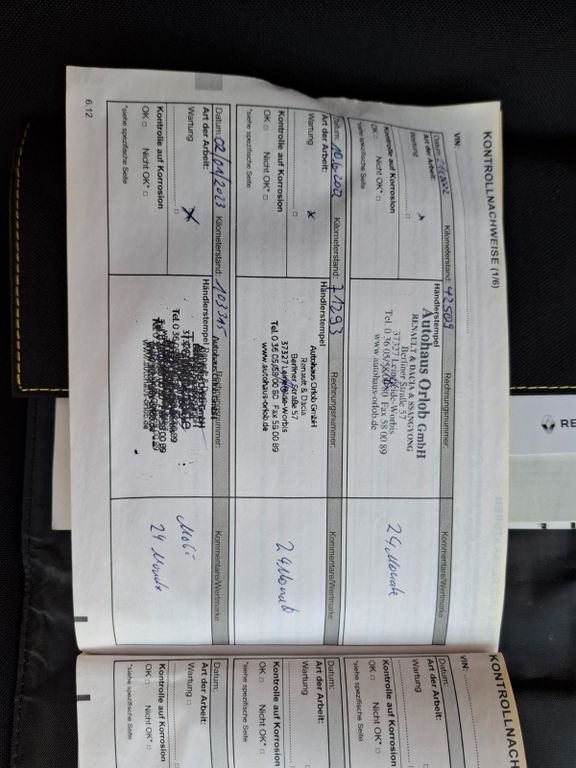 KONTROLLNACHWEISE (1/6)
VIN:
Datum:
Kilometerstand: 42509
Rechnungsnummer:
Art der Arbeit:
Wartung □
x
Kontrolle auf Korrosion
OK □ Nicht OK* □
*siehe spezifische Seite
Händlerstempel
Autohaus Orlob GmbH
RENAULT & DACIA & SSANGYONG
Berliner Straße 57
37327 Leinefelde-Worbis
Fax 58 00 89
www.autohaus-orlob.de
Kommentare/Wertmarke
24 Monate
Datum:
Kilometerstand: 71293
Rechnungsnummer:
Art der Arbeit:
Wartung □
x
Kontrolle auf Korrosion
OK □ Nicht OK* □
*siehe spezifische Seite
Händlerstempel
Autohaus Orlob GmbH
Renault & Dacia
Berliner Straße 57
37327 Leinefelde-Worbis
Tel. 0 36 05/58 00 80 Fax 58 00 89
www.autohaus-orlob.de
Kommentare/Wertmarke
24 Monate
Datum: 02/01/2023
Kilometerstand: 103315
Rechnungsnummer:
Art der Arbeit:
Wartung □
x
Kontrolle auf Korrosion
OK □ Nicht OK* □
*siehe spezifische Seite
Händlerstempel
Kommentare/Wertmarke
Mobi
24 Monate
6.12
KONTROLLNACH
VIN:
Datum:
Art der Arbeit:
Wartung □
Kontrolle auf Korrosion
OK □ Nicht OK* □
*siehe spezifische Seite
Datum:
Art der Arbeit:
Wartung □
Kontrolle auf Korrosion
OK □ Nicht OK* □
*siehe spezifische Seite
Datum:
Art der Arbeit:
Wartung □
Kontrolle auf Korrosion
OK □ Nicht OK* □
*siehe spezifische Seite
RE